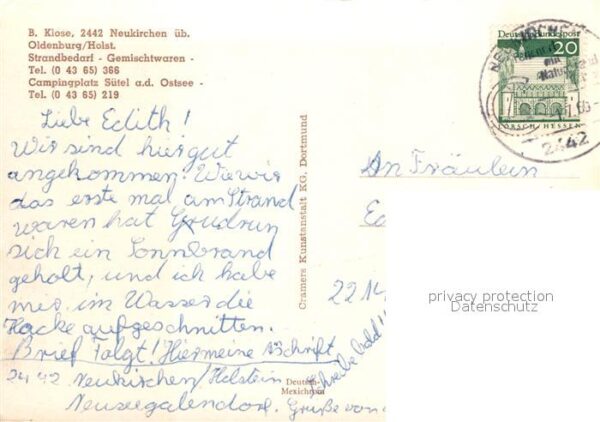 B. Klose, 2442 Neukirchen üb.
Oldenburg/Holst.
Strandbedarf - Gemischtwaren -
Tel. (0 43 65) 366
Campingplatz Sütel a.d. Ostsee -
Tel. (0 43 65) 219
Liebe Edith!
Wir sind hier gut
angekommen. Wie wir
das erste mal am Strand
waren hat Grudrun
sich ein Sonnbrand
geholt, und ich habe
mir im Wasser die
Hacke aufgeschnitten.
Brief Folgt! Hier meine Aschrift
2442 Neukirchen/Holstein
Neuseegalendorf. Grüße von
Schreibe bald!
Cramers Kunstanstalt KG. Dortmund
Deutsch-
Mexichrom
Deutsche Bundespost
20
LORSCH/HESSEN
2442
An Fräulein
22 14
privacy protection
Datenschutz